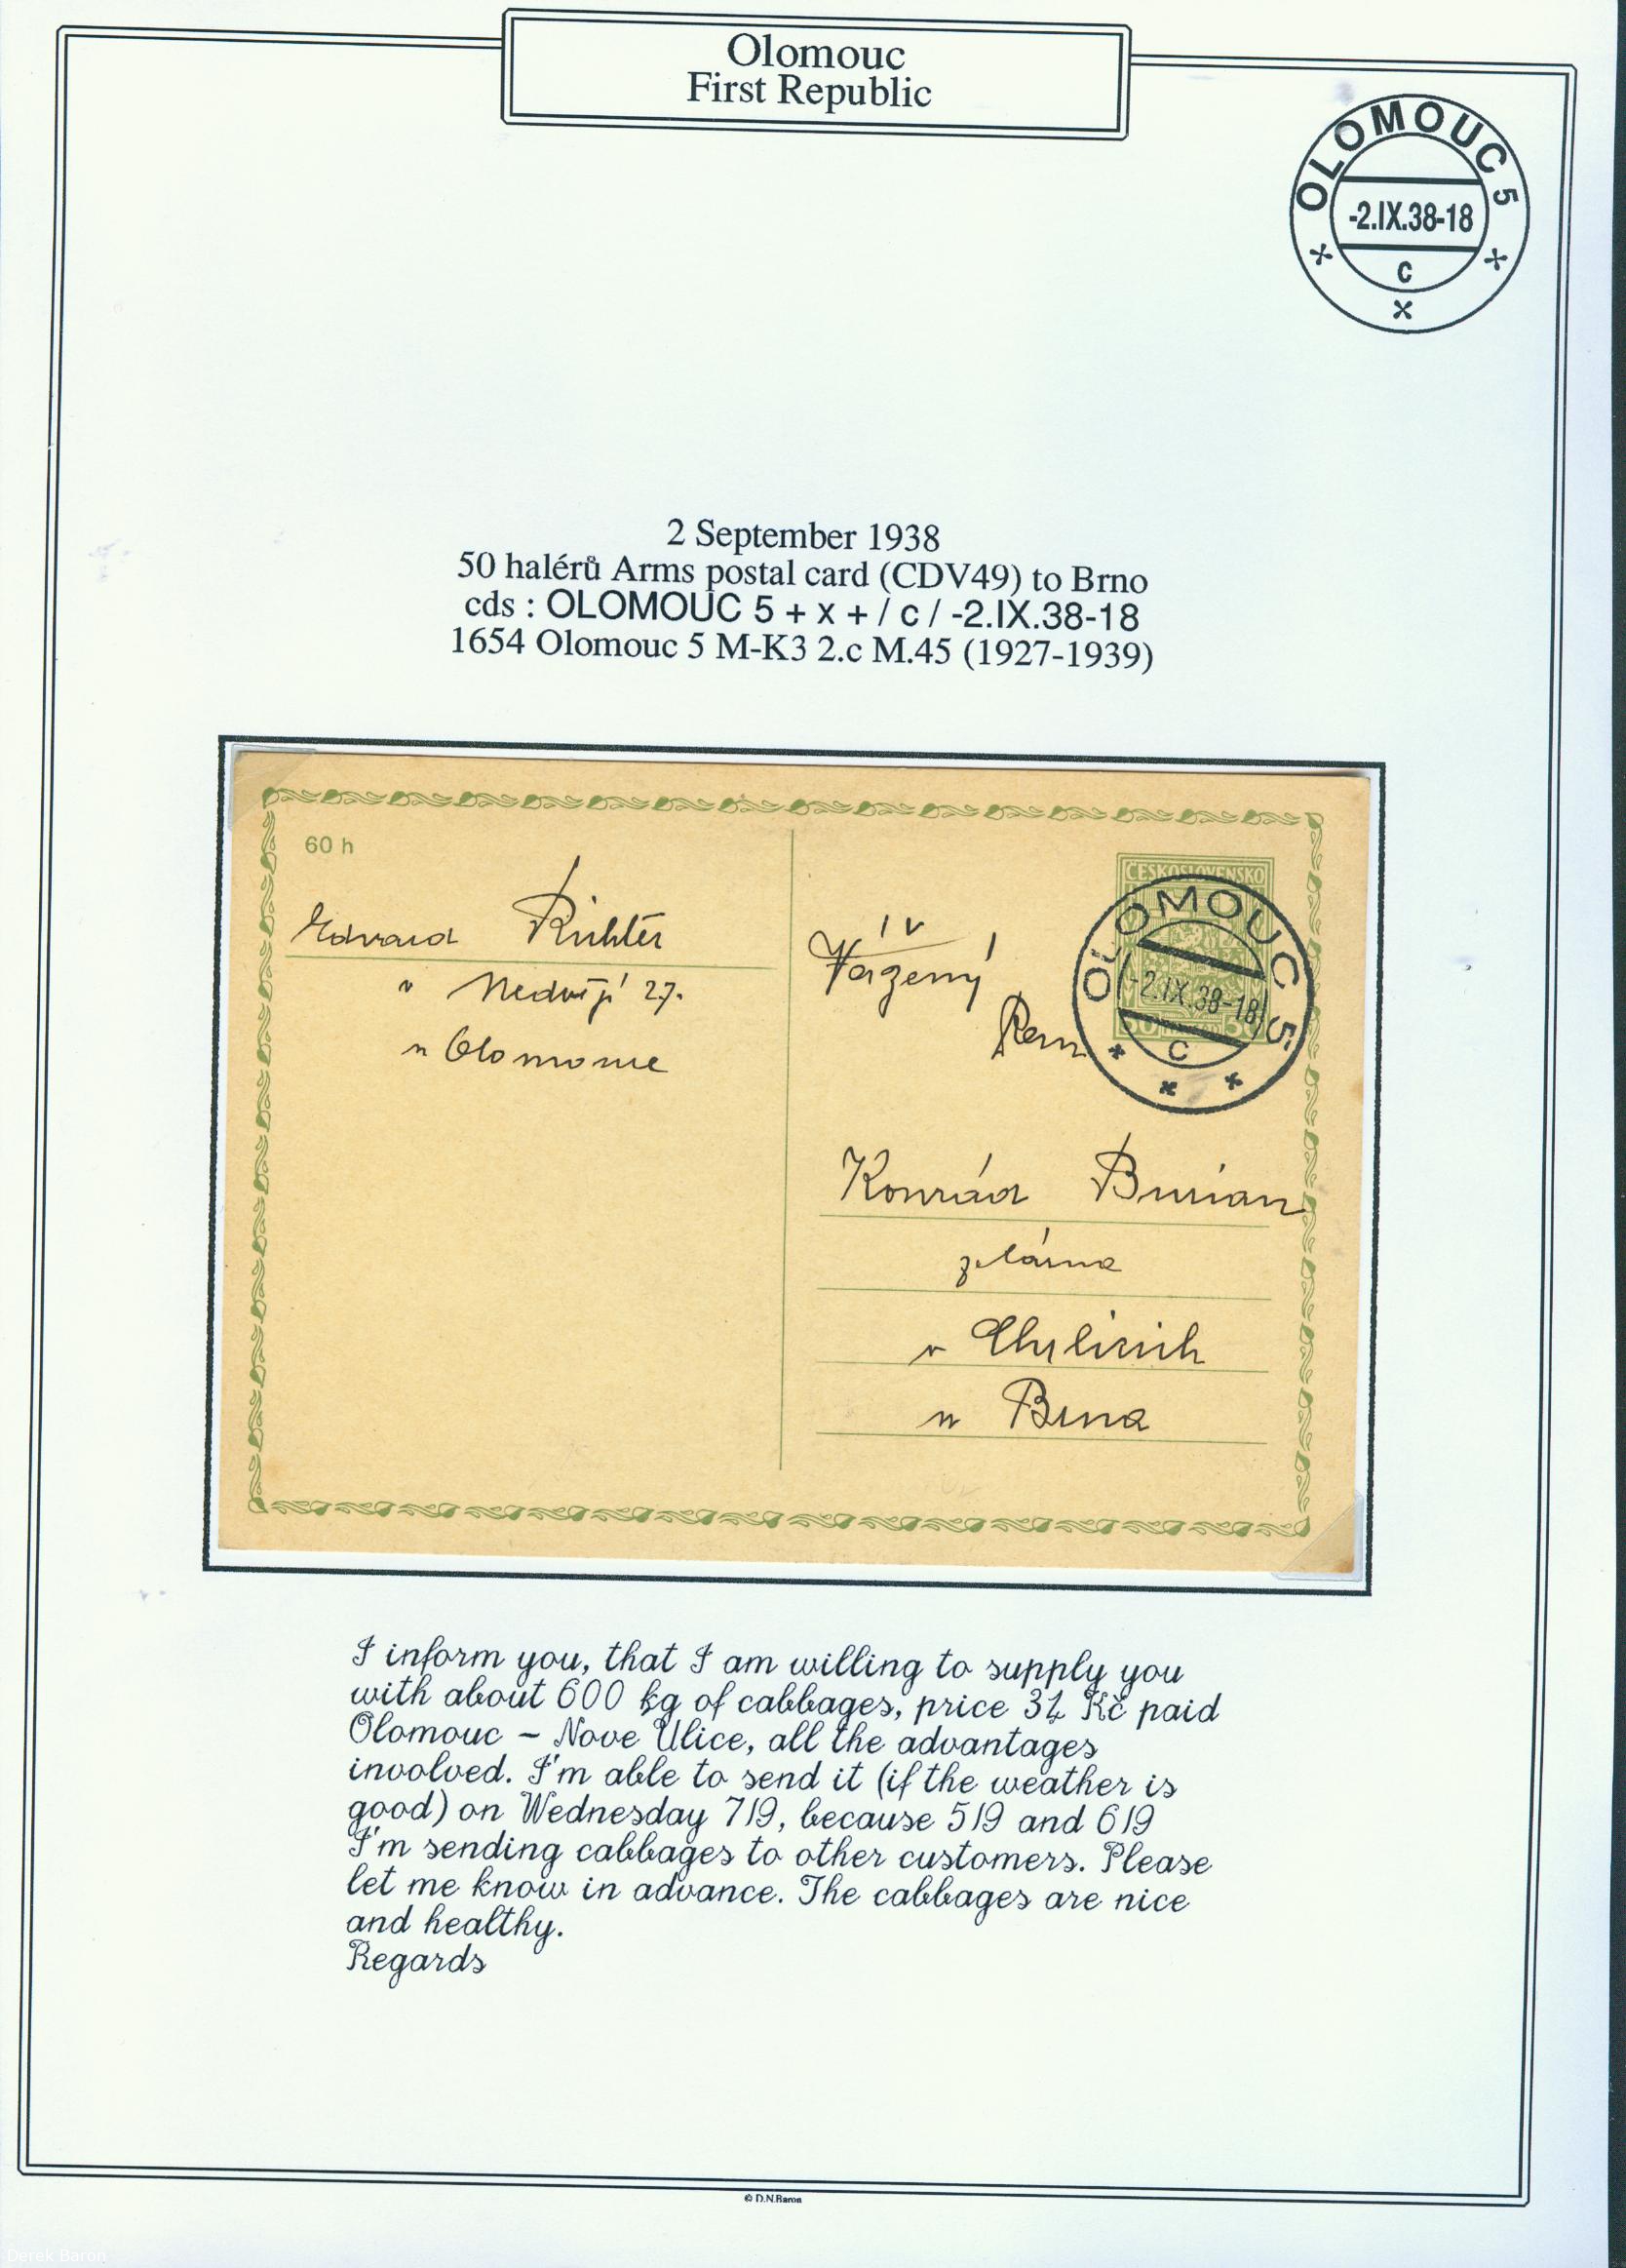 Olomouc
First Republic
OLOMOUC 5
-2.IX.38-18
c
2 September 1938
50 halérů Arms postal card (CDV49) to Brno
cds : OLOMOUC 5 + x + / c / -2.IX.38-18
1654 Olomouc 5 M-K3 2.c M.45 (1927-1939)
60 h
Edvard Richter
v Nedvězí 27.
u Olomouc
ČESKOSLOVENSKO
OLOMOUC 5
-2.IX.38-18
c
50 50
Vážený
Pan
Konrád Burian
zelárna
v Chrlicích
u Brna
I inform you, that I am willing to supply you
with about 600 kg of cabbages, price 34 Kč paid
Olomouc - Nove Ulice, all the advantages
involved. I'm able to send it (if the weather is
good) on Wednesday 7/9, because 5/9 and 6/9
I'm sending cabbages to other customers. Please
let me know in advance. The cabbages are nice
and healthy.
Regards
© D.N.Baron
Derek Baron